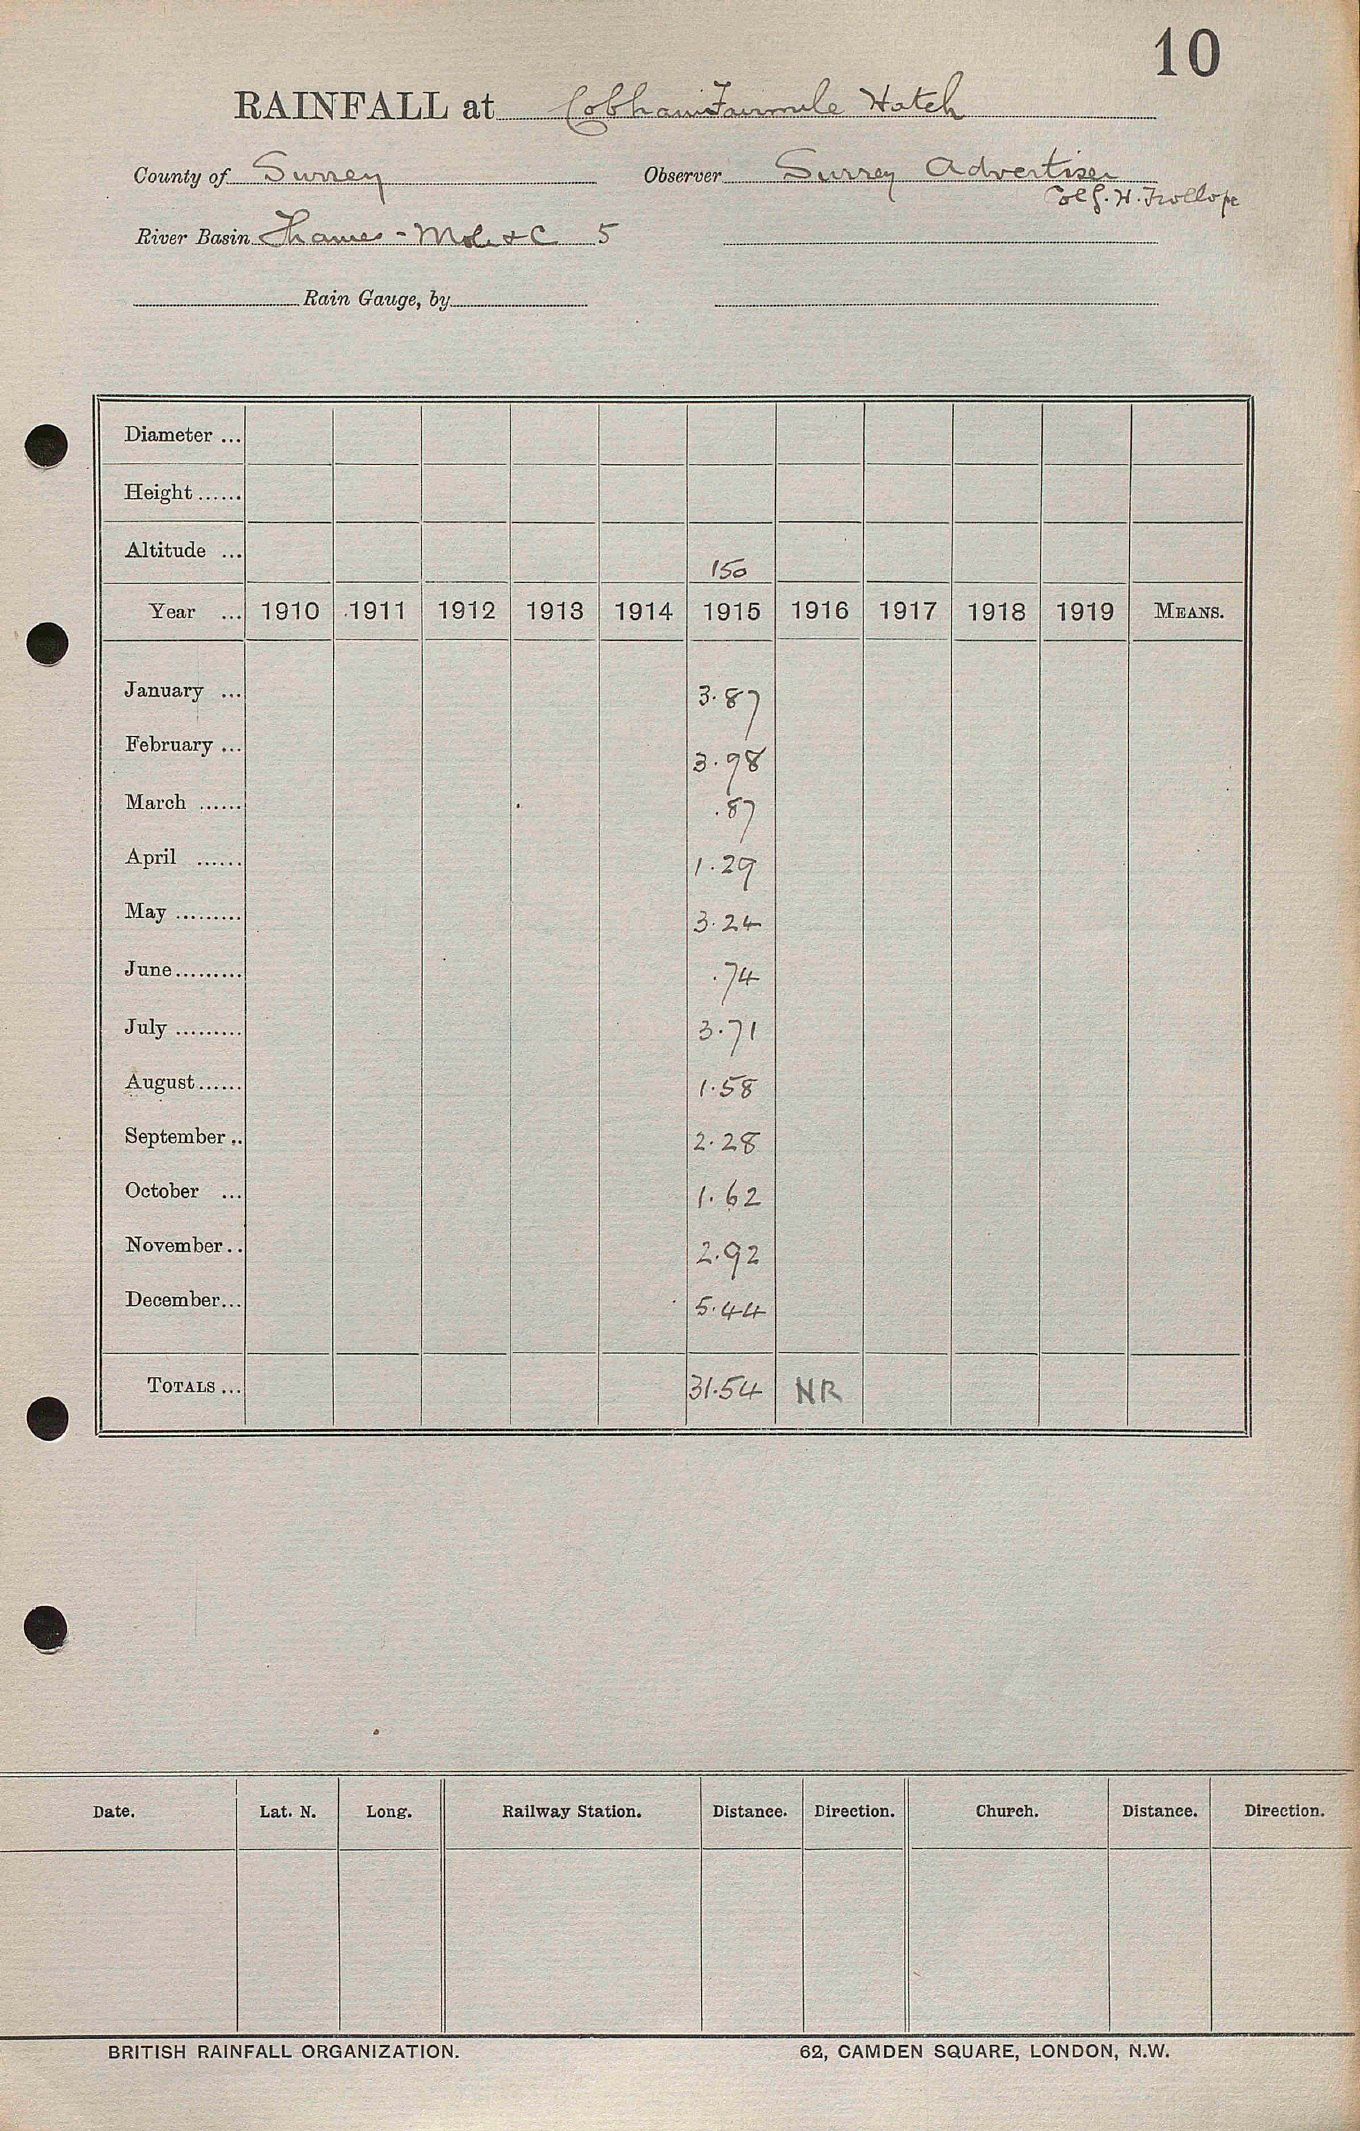 10
RAINFALL at Cobham Fairmile Hatch
County of Surrey Observer Surrey Advertiser
Col. J. H. Trollope
River Basin Thames - Mole &c 5
Rain Gauge, by
Diameter ...
Height ......
Altitude ... 150
Year ... 1910 1911 1912 1913 1914 1915 1916 1917 1918 1919 MEANS.
January ... 3.87
February ... 3.98
March ...... .87
April ...... 1.29
May ......... 3.24
June ......... .74
July ......... 3.71
August ...... 1.58
September .. 2.28
October ... 1.62
November .. 2.92
December ... 5.44
TOTALS ... 31.54 NR
Date. Lat. N. Long. Railway Station. Distance. Direction. Church. Distance. Direction.
BRITISH RAINFALL ORGANIZATION. 62, CAMDEN SQUARE, LONDON, N.W.